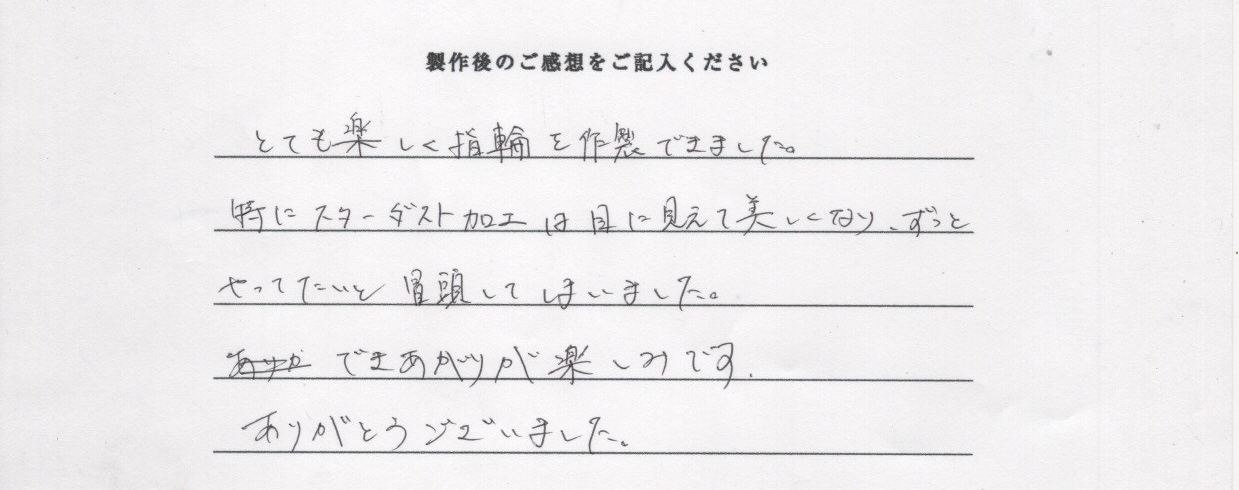 製作後のご感想をご記入ください
とても楽しく指輪を作製できました。
特にスターダスト加工は目に見えて美しくなり、ずっと
やってたいと冒頭してしまいました。
できあがりが楽しみです.
ありがとうございました。